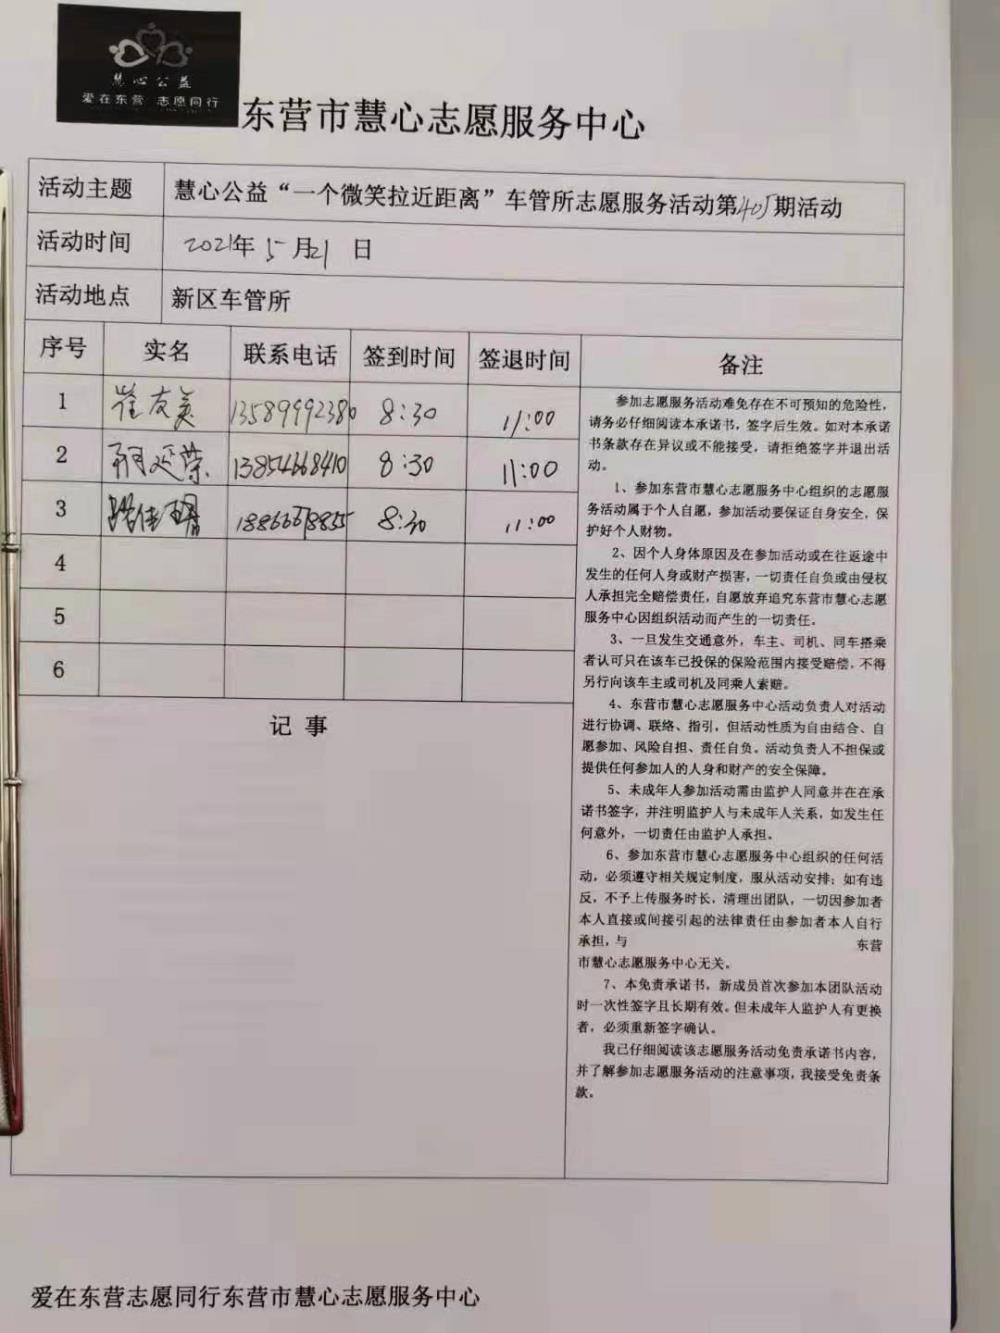 慧心公益
爱在东营 志愿同行
东营市慧心志愿服务中心
活动主题 慧心公益“一个微笑拉近距离”车管所志愿服务活动第405期活动
活动时间 2021年5月21日
活动地点 新区车管所
序号 实名 联系电话 签到时间 签退时间 备注
1 崔友美 13589992380 8:30 11:00
2 延荣 13854668410 8:30 11:00
3 8:30 11:00
4
5
6
记事
参加志愿服务活动难免存在不可预知的危险性,
请务必仔细阅读本承诺书,签字后生效。如对本承诺
书条款存在异议或不能接受,请拒绝签字并退出活
动。
1、参加东营市慧心志愿服务中心组织的志愿服
务活动属于个人自愿,参加活动要保证自身安全,保
护好个人财物。
2、因个人身体原因及在参加活动或在往返途中
发生的任何人身或财产损害,一切责任自负或由侵权
人承担完全赔偿责任,自愿放弃追究东营市慧心志愿
服务中心因组织活动而产生的一切责任。
3、一旦发生交通意外,车主、司机、同车搭乘
者认可只在该车已投保的保险范围内接受赔偿,不得
另行向该车主或司机及同乘人索赔。
4、东营市慧心志愿服务中心活动负责人对活动
进行协调、联络、指引,但活动性质为自由结合、自
愿参加、风险自担、责任自负。活动负责人不担保或
提供任何参加人的人身和财产的安全保障。
5、未成年人参加活动需由监护人同意并在在承
诺书签字,并注明监护人与未成年人关系,如发生任
何意外,一切责任由监护人承担。
6、参加东营市慧心志愿服务中心组织的任何活
动,必须遵守相关规定制度,服从活动安排;如有违
反,不予上传服务时长,清理出团队,一切因参加者
本人直接或间接引起的法律责任由参加者本人自行
承担,与 东营
市慧心志愿服务中心无关。
7、本免责承诺书,新成员首次参加本团队活动
时一次性签字且长期有效。但未成年人监护人有更换
者,必须重新签字确认。
我已仔细阅读该志愿服务活动免责承诺书内容,
并了解参加志愿服务活动的注意事项,我接受免责条
款。
爱在东营志愿同行东营市慧心志愿服务中心